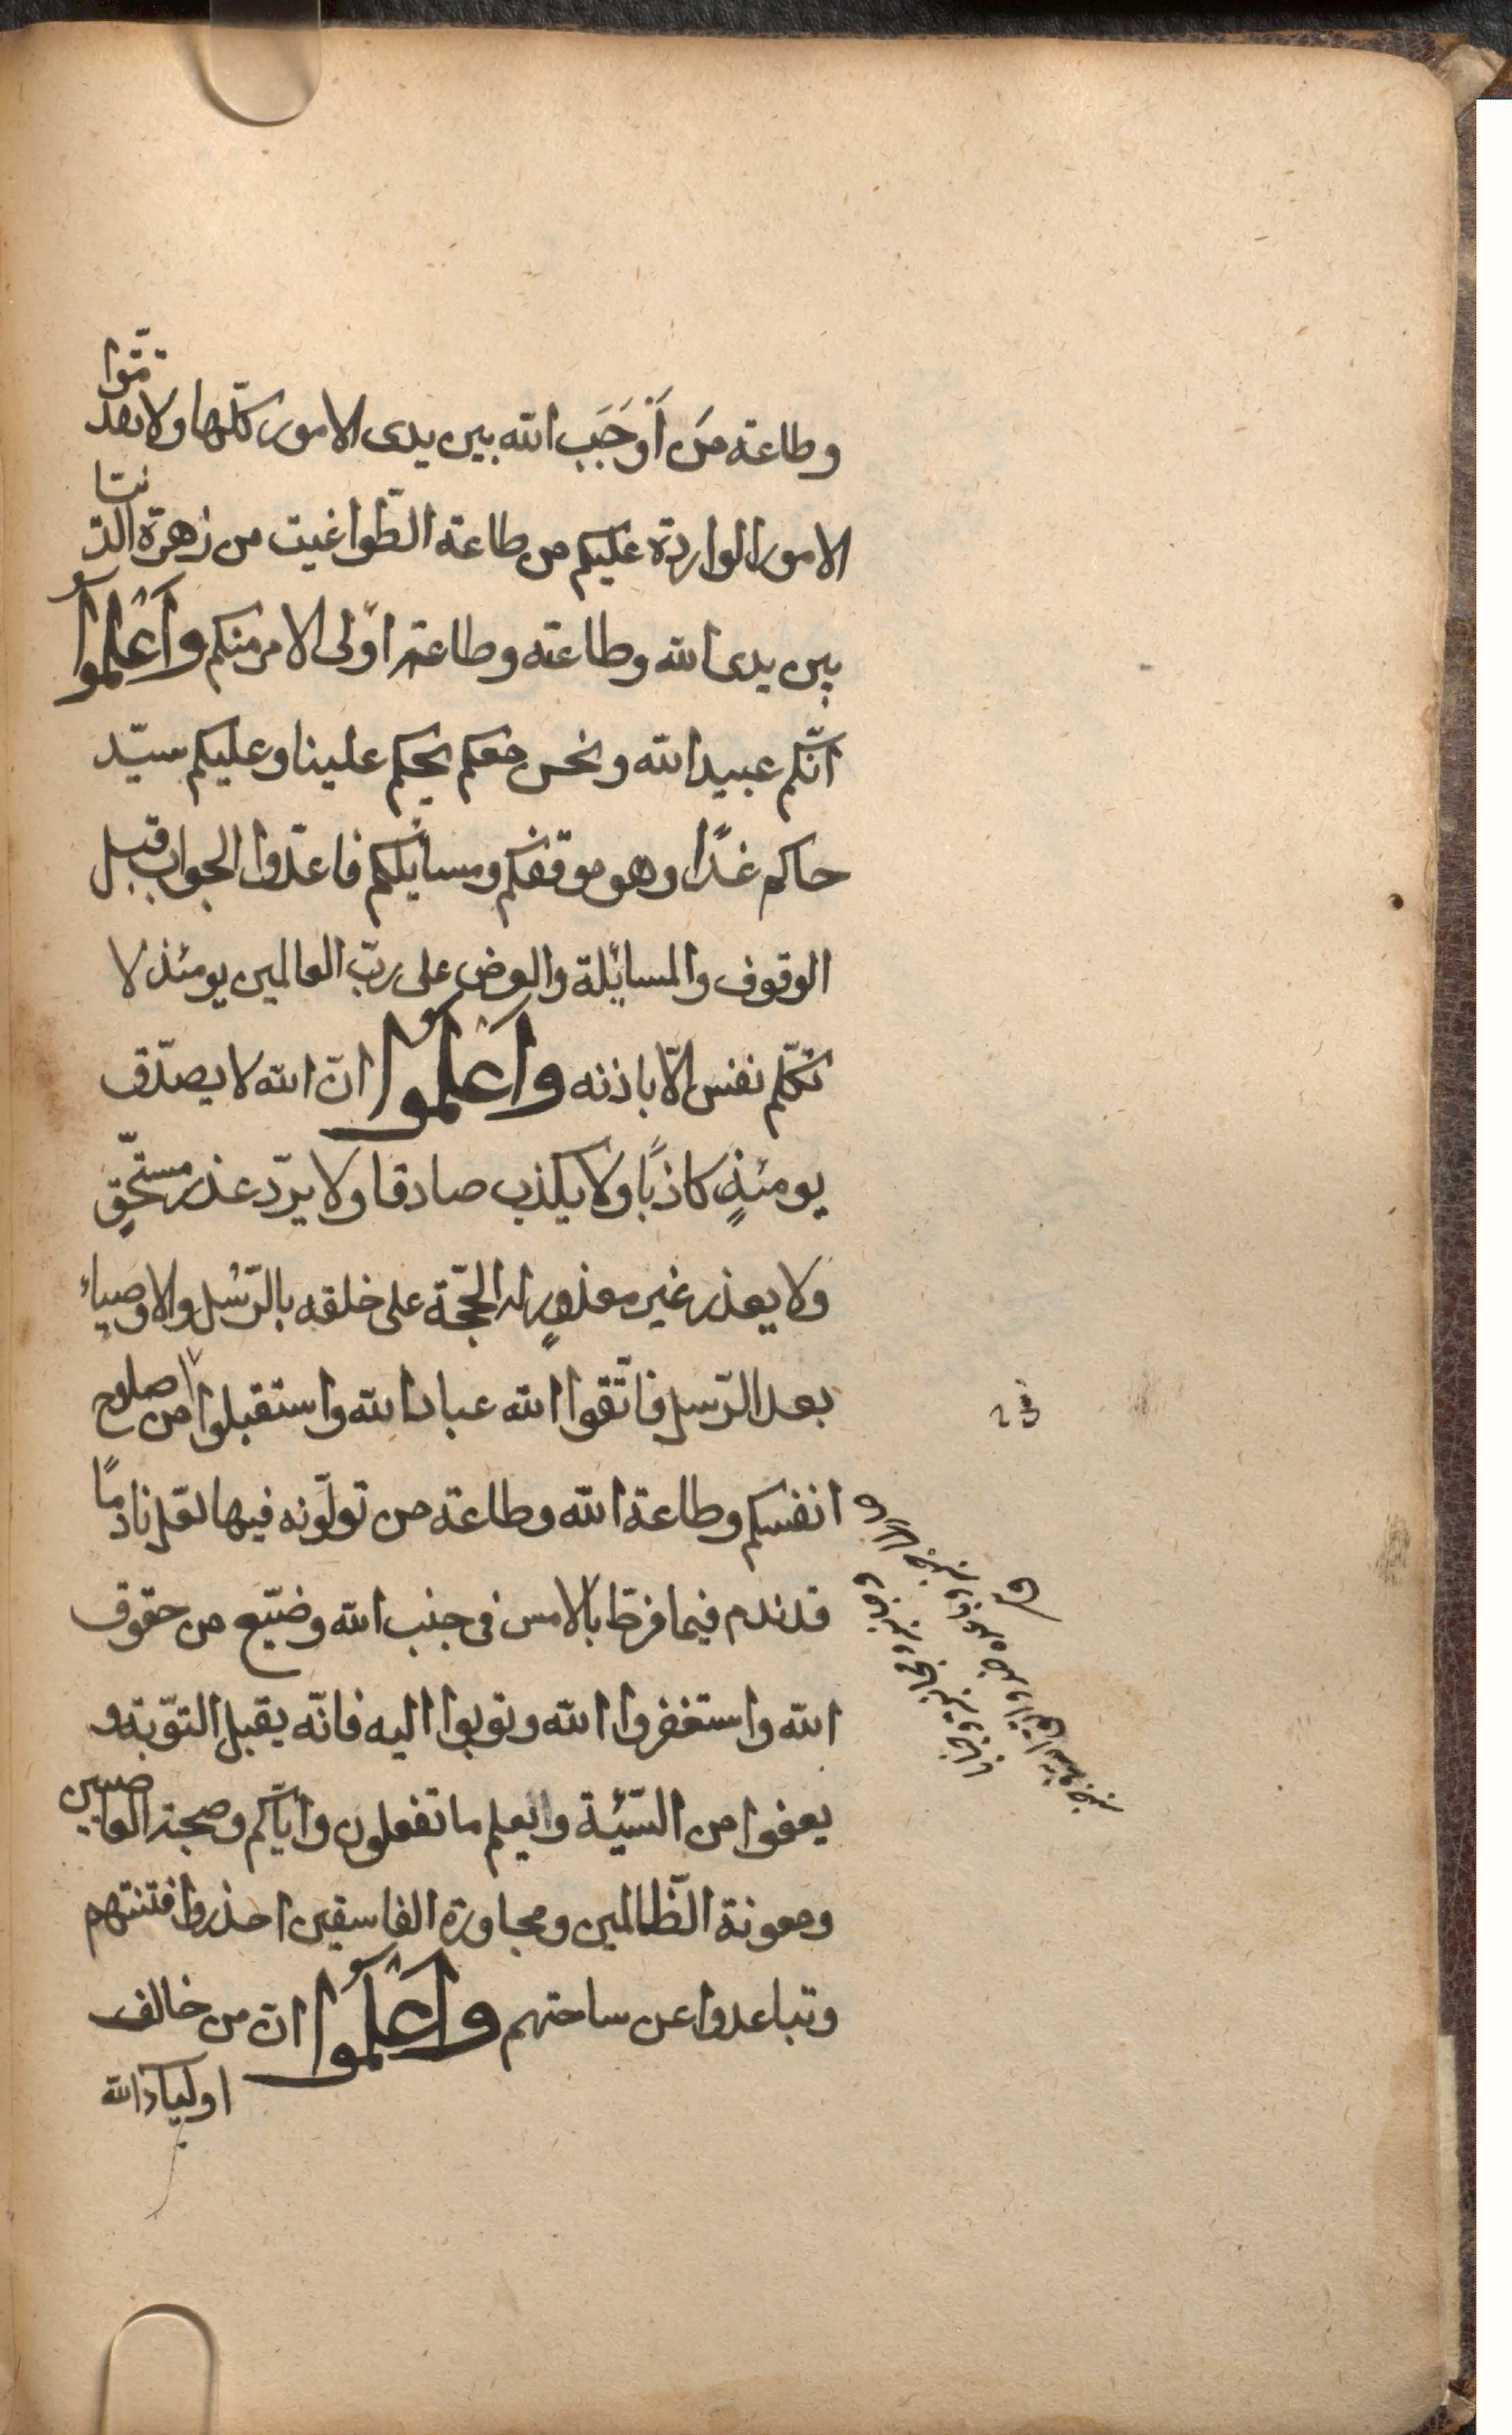 وطاعة مَن أَوْجَبَ الله بين يدى الامور كلّها ولا تقدّموا
الامور الواردة عليكم من طاعة الطّواغيت من زهرة الدّنيا
بين يدى الله وطاعته وطاعة اولى الامر منكم وَاعْلَمُوا
انّكم عبيد الله ونحن معكم يحكم علينا وعليكم سيّد
حاكم غدًا وهو موقفكم ومسايلكم فاعدّوا الجواب قبل
الوقوف والمسائلة والعرض على ربّ العالمين يومئذ لا
تكلّم نفس الّا باذنه وَاعْلَمُوا انّ الله لا يصدّق
يومئذٍ كاذبًا ولا يكذب صادقا ولا يردّ عذر مستحقّ
ولا يعذر غير معذورٍ له الحجّة على خلقه بالرّسُل والاوصياء
بعد الرّسل فاتّقوا الله عباد الله واستقبلوا من اصلاح
انفسكم وطاعة الله وطاعة من تولّونه فيها لعلّ نادمًا
قد ندم فيما فرط بالامس فى جنب الله وضيّع من حقوق
الله واستغفروا الله وتوبوا اليه فانّه يقبل التّوبة و
يعفوا من السّيّئة وايعلم ما تفعلون وايّاكم وصحبة العاصين
ومعونة الظّالمين ومجاورة الفاسقين احذروا فتنتهم
وتباعدوا عن ساحتهم وَاعْلَمُوا انّ من خالف
اولياء الله